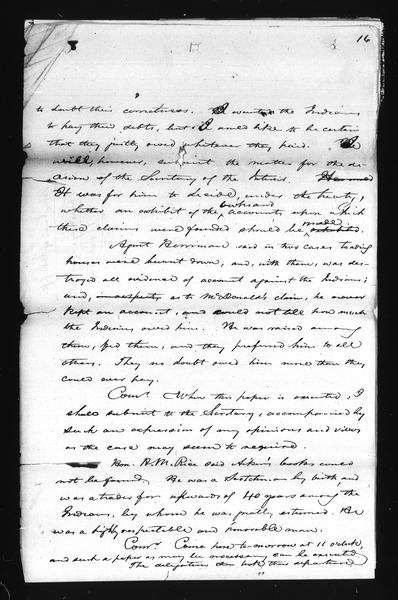 16
to doubt their correctness. I wanted the Indians
to pay their debts, but I would like to be certain
that they justly owed whatever they paid. He
will, however, submit the matter for the de-
cision of the Secretary of the Interior.
It was for him to decide, under the treaty,
whether an exhibit of the books and accounts upon which
these claims were founded should be made.
Agent Berriman said in two cases trading
houses were burnt down, and, with them, was des-
troyed all evidence of account against the Indians;
and, as to McDonald's claim, he never
kept an account, and could not tell how much
the Indians owed him. He was raised among
them, fed them, and they preferred him to all
others. They no doubt owed him more than they
could ever pay.
Comr. When this paper is executed, I
shall submit to the Secretary, accompanied by
such an expression of my opinions and views
as the case may seem to require.
Hon. H. M. Rice said Aikin's books could
not be found. He was a Scotchman by birth and
was a trader for upwards of 40 years among the
Indians, by whom he was greatly esteemed. He
was a highly respectable and honorable man.
Comr. Come here to-morrow at 11 o'clock
and such a paper as may be necessary can be executed.
The delegations then both then departed